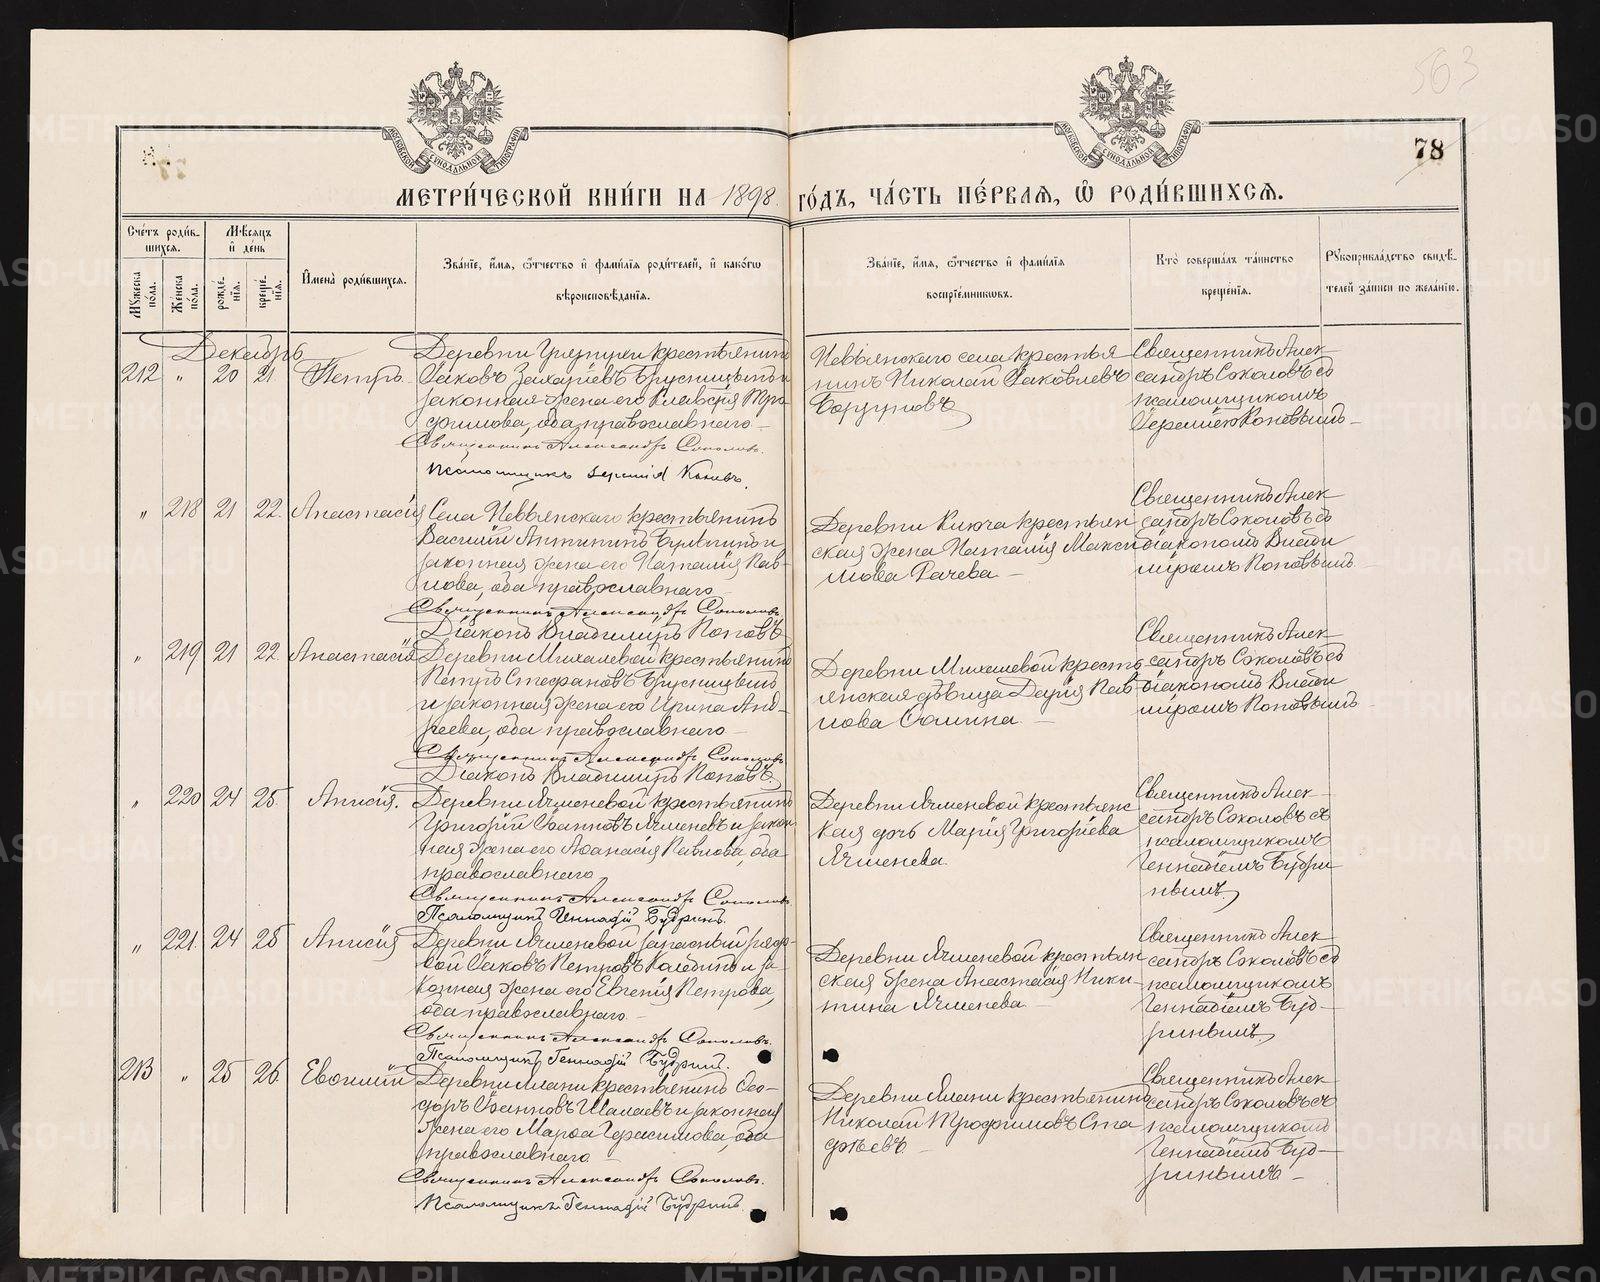 563
78
МОСКОВСКОЙ СѴНОДАЛЬНОЙ ТИПОГРАФІИ
МОСКОВСКОЙ СѴНОДАЛЬНОЙ ТИПОГРАФІИ
МЕТРИ́ЧЕСКОЙ КНИ́ГИ НА 1898 ГО́ДЪ, ЧА́СТЬ ПЕ́РВАѦ, Ѽ РОДИ́ВШИХСѦ.
Сче́тъ роди́в-
шихсѧ.
Мꙋжеска по́ла.
Женска по́ла.
Мѣ́сѧцъ
и҆ де́нь
рожде́-
нїѧ.
креще́-
нїѧ.
И҆мена̀ роди́вшихсѧ.
Зва́нїе, и҆́мѧ, ѻ҆́тчество и҆ фами́лїѧ роди́телей, и҆ како́гѡ
вѣроисповѣ́данїѧ.
Зва́нїе, и҆́мѧ, ѻ҆́тчество и҆ фами́лїѧ
воспрїе́мникѡвъ.
Кто̀ соверша́лъ та́инство
креще́нїѧ.
Рꙋкоприкла́дство свидѣ́-
телей за́писи по жела́нїю.
Декабрь
212 " 20 21 Петръ
Деревни
крестьянинъ
Іаковъ Захаріевъ Брусницынъ и
законная жена его Клавдія Тро-
фимова, оба православнаго
Священникъ Александръ Соколовъ.
Псаломщикъ Іеремія Коневъ.
Невьянскаго села крестья
нинъ Николай Іаковлевъ
Боруновъ
Священникъ Алек
сандръ Соколовъ съ
псаломщикомъ
Іереміею Коневымъ
" 218 21 22 Анастасія
Села Невьянскаго крестьянинъ
Василій Антипинъ
законная жена его Наталія Пав-
лова, оба православнаго
Священникъ Александръ Соколовъ
Діаконъ Владимиръ Поповъ
Деревни Ключа крестьян
ская жена Наталія Макси
мова Рачева
Священникъ Алек
сандръ Соколовъ съ
діакономъ Влади
міромъ Поповымъ
" 219 21 22 Анастасія
Деревни Михалевой крестьянинъ
Петръ Стефановъ Брусницынъ
и законная жена его Ирина Анд-
реева, оба православнаго
Священникъ Александръ Соколовъ
Діаконъ Владимиръ Поповъ.
Деревни Михалевой кресть
янская дѣвица Дарія Пав
лова Сомина
Священникъ Алек
сандръ Соколовъ съ
діакономъ Влади
міромъ Поповымъ
" 220 24 25 Анисія.
Деревни Ячменевой крестьянинъ
Григорій Іоанновъ Ячменевъ и закон
ная жена его Афанасія Павлова, оба
православнаго
Священникъ Александръ Соколовъ
Псаломщикъ Геннадій Будринъ.
Деревни Ячменевой крестьянс
кая дочь Марія Григоріева
Ячменева
Священникъ Алек
сандръ Соколовъ съ
псаломщикомъ
Геннадіемъ Будри
нымъ
" 221 24 25 Анисія
Деревни Ячменевой запасный рядо-
вой Іаковъ Петровъ Колединъ и за
конная жена его Евгенія Петрова,
оба православнаго
Священникъ Александръ Соколовъ.
Псаломщикъ Геннадій Будринъ.
Деревни Ячменевой крестьян
ская жена Анастасія Ники
тина Ячменева
Священникъ Алек
сандръ Соколовъ съ
псаломщикомъ
Геннадіемъ Буд-
ринымъ
213 " 25 26 Евѳимій
Деревни Ялани крестьянинъ Ѳео-
доръ Іоанновъ Шалаевъ и законная
жена его Марѳа Герасимова, оба
православнаго
Священникъ Александръ Соколовъ.
Псаломщикъ Геннадій Будринъ.
Деревни Ялани крестьянинъ
Николай Трофимовъ Ста
дѣевъ
Священникъ Алек
сандръ Соколовъ съ
псаломщикомъ
Геннадіемъ Буд-
ринымъ
METRIKI.GASO-URAL.RU